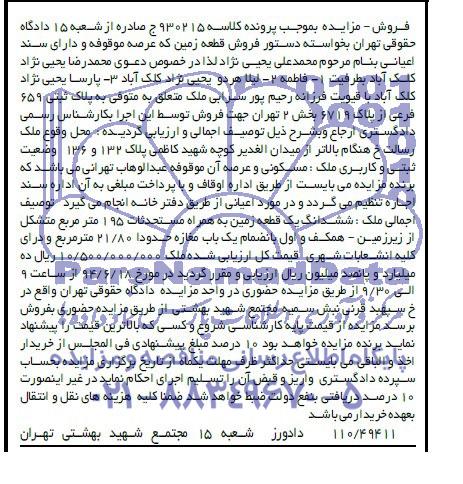 فروش - مزایده بموجب پرونده کلاسه ۹۳۰۲۱۵ ج صادره از شعبه ۱۵ دادگاه
حقوقی تهران بخواسته دستور فروش قطعه زمین که عرصه موقوفه و دارای سند
اعیانی بنام مرحوم محمدعلی یحیی نژاد لذا در خصوص دعوی محمدرضا یحیی نژاد
کلک آباد بطرفیت ۱- فاطمه ۲- لیلا هردو یحیی نژاد کلک آباد ۳- پارسا یحیی نژاد
کلک آباد با قیمومیت فرزانه رحیم پور سرابی ملک متعلق به متوفی به پلاک ثبتی ۶۵۹
فرعی از پلاک ۶۷۱۹ بخش ۲ تهران جهت فروش توسط این اجرا بکارشناس رسمی
دادگستری ارجاع وبشرح ذیل توصیف اجمالی و ارزیابی گردیده: محل وقوع ملک
رسالت خ هنگام بالاتر از میدان الغدیر کوچه شهید کاظمی پلاک ۱۳۲ و ۱۳۶ وضعیت
ثبتی و کاربری ملک: مسکونی و عرصه آن موقوفه عبدالوهاب تهرانی می باشد که
برنده مزایده می بایست از طریق اداره اوقاف و با پرداخت مبلغی به آن اداره سند
اجاره تنظیم می گردد و در مورد اعیانی از طریق دفتر خانه انجام می گیرد توصیف
اجمالی ملک: ششدانگ یک قطعه زمین به همراه مستحدثات ۱۹۵ متر مربع متشکل
از زیرزمین - همکف و اول بانضمام یک باب مغازه حدودا ۲۱/۸۰ مترمربع و درای
کلیه انشعابات شهری قیمت کل ارزیابی شده ملک ۱۰/۵۰۰/۰۰۰/۰۰۰ ریال ده
میلیارد و پانصد میلیون ریال ارزیابی و مقرر گردید در مورخ ۹۴/۶/۱۸ از ساعت ۹
الی ۹/۳۰ از طریق مزایده حضوری در واحد مزایده دادگاه حقوقی تهران واقع در
خ سپهبد قرنی نبش سمیه مجتمع شهید بهشتی از طریق مزایده حضوری بفروش
برسد مزایده از قیمت پایه کارشناسی شروع و کسی که بالاترین قیمت را پیشنهاد
نماید برنده مزایده خواهد بود ۱۰ درصد مبلغ پیشنهادی فی المجلس از خریدار
اخذ و الباقی می بایستی حداکثر ظرف مهلت یکماه از تاریخ برگزاری مزایده بحساب
سپرده دادگستری واریز و قبض آن را تسلیم اجرای احکام نماید در غیر اینصورت
۱۰ درصد دریافتی بنفع دولت ضبط خواهد شد ضمنا کلیه هزینه های نقل و انتقال
بعهده خریدار می باشد
۱۱۰/۴۹۴۱۱ دادورز شعبه ۱۵ مجتمع شهید بهشتی تهران
پایگاه اطلاع رسانی مناقصه و مزایده
۰۲۱-۸۸۳۴۹۶۷۰-۵